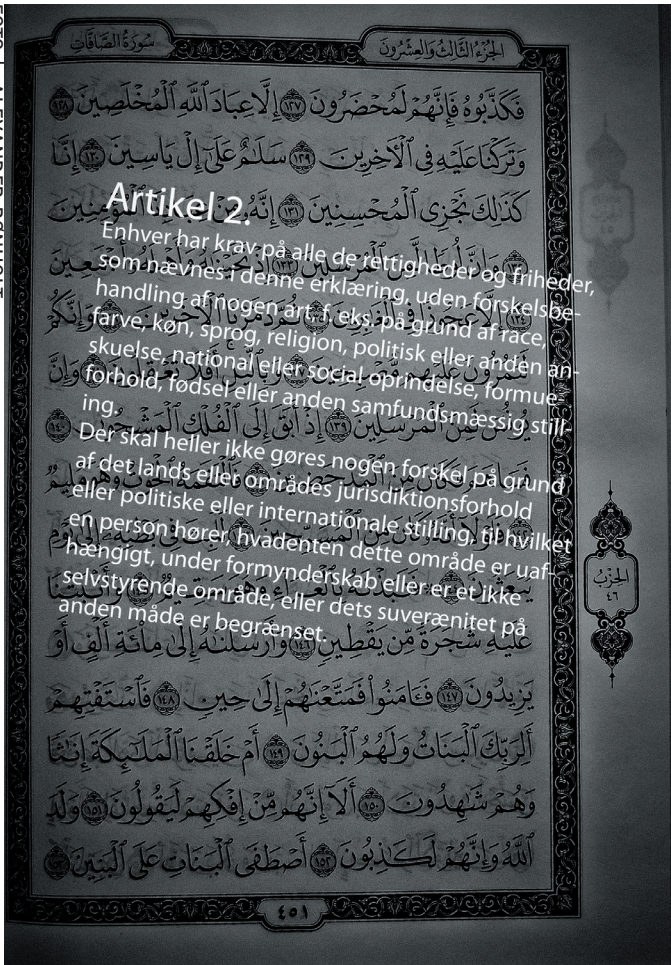 FOTO | ALEXANDER
الجُزْءُ الثَّالِثُ وَالعِشْرُونَ
سُورَةُ الصَّافَّاتِ
فَكَذَّبُوهُ فَإِنَّهُمْ لَمُحْضَرُونَ ١٢٧ إِلَّا عِبَادَ ٱللَّهِ ٱلْمُخْلَصِينَ ١٢٨
وَتَرَكْنَا عَلَيْهِ فِى ٱلْأَخِرِينَ ١٢٩ سَلَٰمٌ عَلَىٰٓ إِلْ يَاسِينَ ١٣٠ إِنَّا
كَذَٰلِكَ نَجْزِى ٱلْمُحْسِنِينَ ١٣١ إِنَّهُۥ مِنْ ٱلْمُؤْمِنِينَ
Artikel 2.
Enhver har krav på alle de rettigheder og friheder,
som nævnes i denne erklæring, uden forskelsbe-
handling af nogen art, f. eks. på grund af race,
farve, køn, sprog, religion, politisk eller anden an-
skuelse, national eller social oprindelse, formue-
forhold, fødsel eller anden samfundsmæssig still-
ing.
Der skal heller ikke gøres nogen forskel på grund
af det lands eller områdes jurisdiktionsforhold
eller politiske eller internationale stilling, til hvilket
en person hører, hvadenten dette område er uaf-
hængigt, under formynderskab eller er et ikke
selvstyrende område, eller dets suverænitet på
anden måde er begrænset.
إِذْ أَبَقَ إِلَى ٱلْفُلْكِ ٱلْمَشْحُونِ ١٤٠
عَلَيْهِ شَجَرَةً مِّن يَقْطِينٍ ١٤٦ وَأَرْسَلْنَٰهُ إِلَىٰ مِا۟ئَةِ أَلْفٍ أَوْ
يَزِيدُونَ ١٤٧ فَـَٔامَنُوا۟ فَمَتَّعْنَٰهُمْ إِلَىٰ حِينٍ ١٤٨ فَٱسْتَفْتِهِمْ
أَلِرَبِّكَ ٱلْبَنَاتُ وَلَهُمُ ٱلْبَنُونَ ١٤٩ أَمْ خَلَقْنَا ٱلْمَلَٰٓئِكَةَ إِنَٰثًا
وَهُمْ شَٰهِدُونَ ١٥٠ أَلَآ إِنَّهُم مِّنْ إِفْكِهِمْ لَيَقُولُونَ ١٥١ وَلَدَ
ٱللَّهُ وَإِنَّهُمْ لَكَٰذِبُونَ ١٥٢ أَصْطَفَى ٱلْبَنَاتِ عَلَى ٱلْبَنِينَ ١٥٣
الحِزْبُ
٤٦
٤٥١